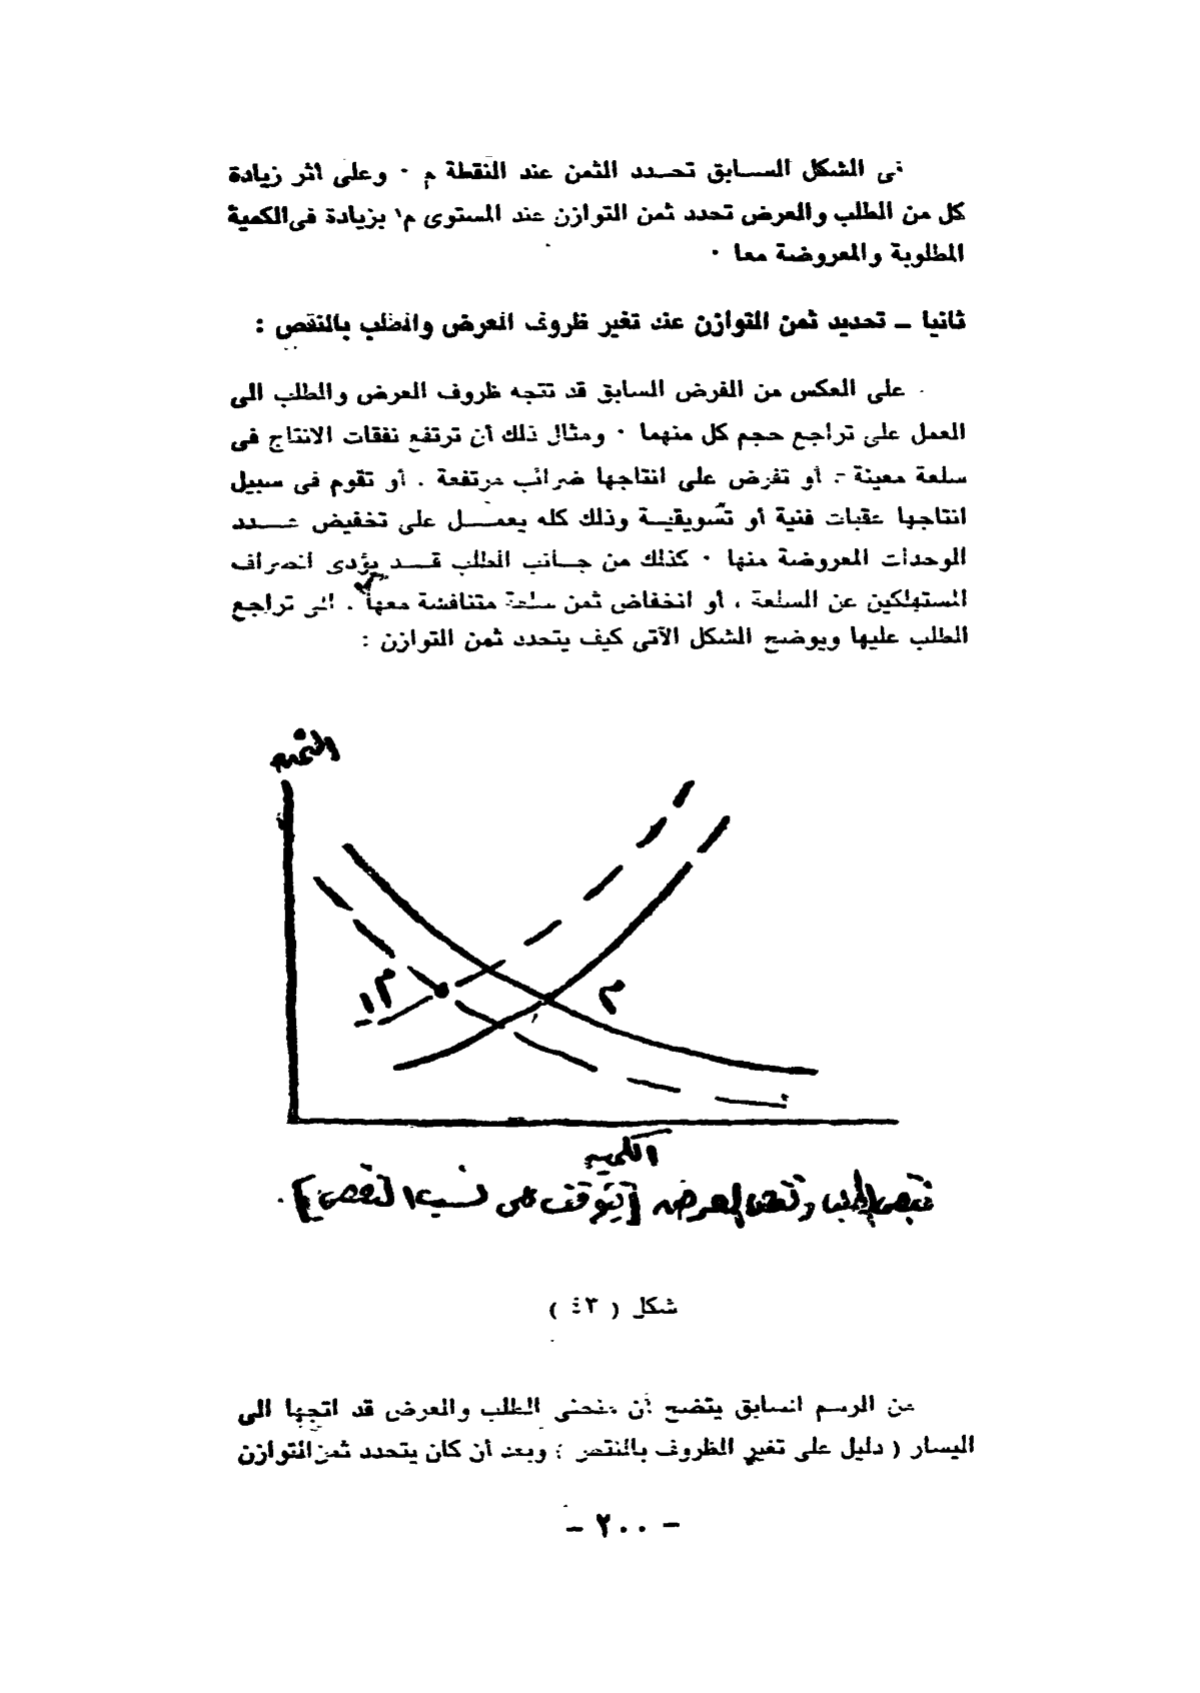 فى الشكل السابق تحدد الثمن عند النقطة م ٠ وعلى أثر زيادة
كل من الطلب والعرض تحدد ثمن التوازن عند المستوى م١ بزيادة فى الكمية
المطلوبة والمعروضة معا ٠
ثانيا ــ تحديد ثمن التوازن عند تغير ظروف العرض والطلب بالنقص :
على العكس من الفرض السابق قد تتجه ظروف العرض والطلب الى
العمل على تراجع حجم كل منهما ٠ ومثال ذلك أن ترتفع نفقات الانتاج فى
سلعة معينة ، أو تفرض على انتاجها ضرائب مرتفعة . أو تقوم فى سبيل
انتاجها عقبات فنية أو تسويقية وذلك كله يعمل على تخفيض عدد
الوحدات المعروضة منها ٠ كذلك من جانب الطلب قد يؤدى انصراف
المستهلكين عن السلعة ، أو انخفاض ثمن سلعة متنافسة معها . الى تراجع
الطلب عليها ويوضح الشكل الآتى كيف يتحدد ثمن التوازن :
الثمن
م١
م
الكمية
نقص الطلب ونقص العرض [يتوقف على نسبة النقص] .
شكل ( ٤٣ )
من الرسم السابق يتضح أن منحنى الطلب والعرض قد اتجها الى
اليسار ( دليل على تغير الظروف بالنقص ) وبعد أن كان يتحدد ثمن التوازن
– ٢٠٠ –